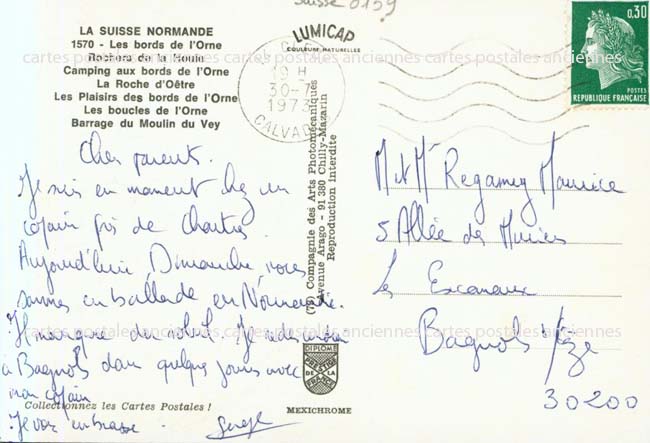 Suisse 0159
LA SUISSE NORMANDE
1570 - Les bords de l'Orne
Rochers de la Houle
Camping aux bords de l'Orne
La Roche d'Oëtre
Les Plaisirs des bords de l'Orne
Les boucles de l'Orne
Barrage du Moulin du Vey
LUMICAP
COULEURS NATURELLES
19 H
30-7
1973
CALVADOS
0,30
POSTES
REPUBLIQUE FRANÇAISE
cartes postales anciennes cartes postales anciennes cartes postales anciennes
Cher parent.
Je suis en moment chez un
copain près de Chartres
Aujourd'hui Dimanche, nous
sommes en ballade en Normandie.
Il manque du soleil. Je redescend
à Bagnols dans quelques jours avec
mon copain
Je vous embrasse. Serge
Collectionnez les Cartes Postales !
Compagnie des Arts Photomécaniques
Avenue Arago - 91 380 Chilly-Mazarin
Reproduction interdite
DIPLOME
PRESTIGE
DE LA
FRANCE
MEXICHROME
M et Mme Regamey Maurice
5 Allée des Muriers
Les Escanaux
Bagnols s/Cèze
30200
cartes postales anciennes cartes postales anciennes cartes postales anciennes